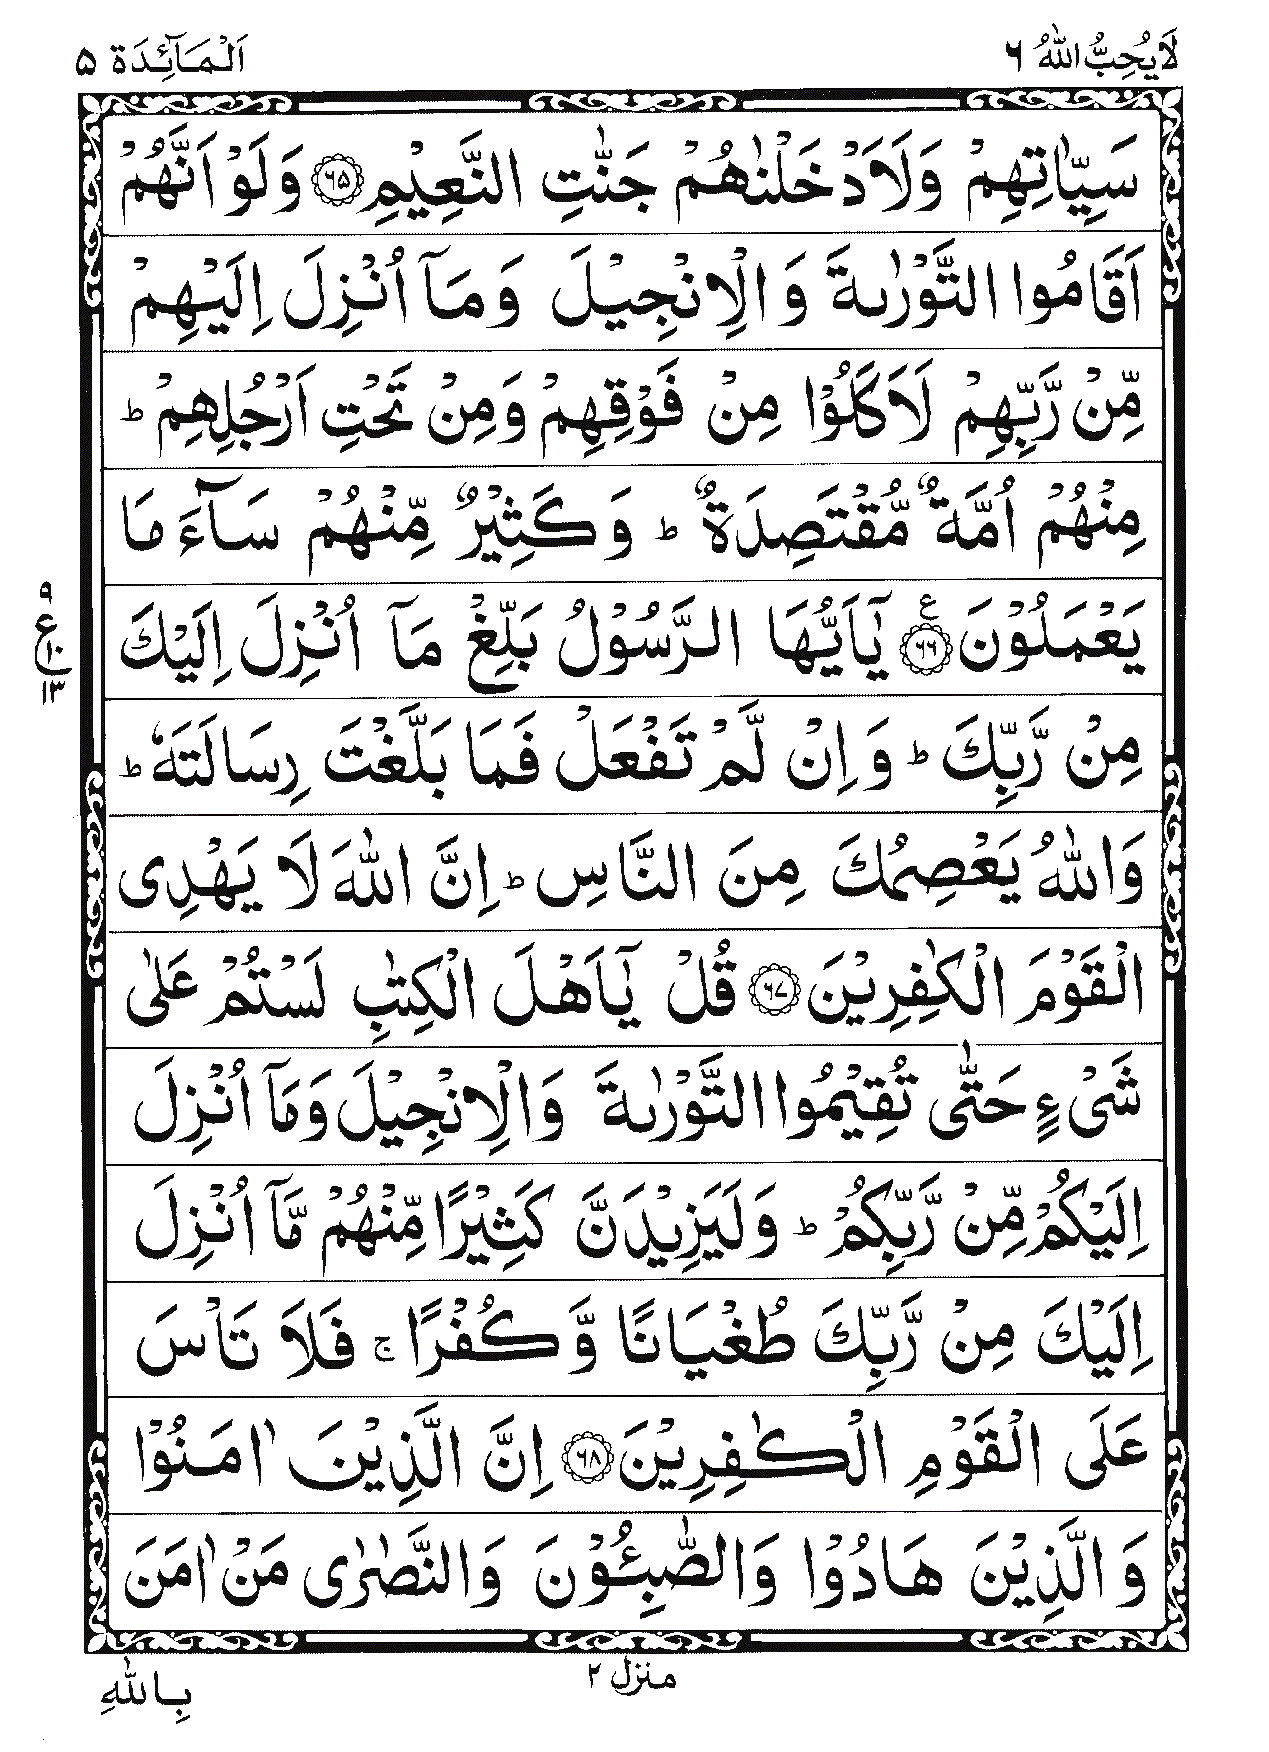 لَا یُحِبُّ اللّٰهُ ۶
اَلْمَآئِدَة ۵
سَیِّاٰتِهِمْ وَلَاَدْخَلْنٰهُمْ جَنّٰتِ النَّعِیْمِ ﴿۶۵﴾ وَلَوْ اَنَّهُمْ
اَقَامُوا التَّوْرٰىةَ وَ الْاِنْجِیْلَ وَ مَاۤ اُنْزِلَ اِلَیْهِمْ
مِّنْ رَّبِّهِمْ لَاَكَلُوْا مِنْ فَوْقِهِمْ وَمِنْ تَحْتِ اَرْجُلِهِمْ ؕ
مِنْهُمْ اُمَّةٌ مُّقْتَصِدَةٌ ؕ وَ كَثِیْرٌ مِّنْهُمْ سَآءَ مَا
یَعْمَلُوْنَ ﴿۶۶﴾ ع یٰۤاَیُّهَا الرَّسُوْلُ بَلِّغْ مَاۤ اُنْزِلَ اِلَیْكَ
۹
ع
۱۰
۱۳
مِنْ رَّبِّكَ ؕ وَ اِنْ لَّمْ تَفْعَلْ فَمَا بَلَّغْتَ رِسَالَتَهٗ ؕ
وَاللّٰهُ یَعْصِمُكَ مِنَ النَّاسِ ؕ اِنَّ اللّٰهَ لَا یَهْدِی
الْقَوْمَ الْكٰفِرِیْنَ ﴿۶۷﴾ قُلْ یٰۤاَهْلَ الْكِتٰبِ لَسْتُمْ عَلٰی
شَیْءٍ حَتّٰی تُقِیْمُوا التَّوْرٰىةَ وَالْاِنْجِیْلَ وَمَاۤ اُنْزِلَ
اِلَیْكُمْ مِّنْ رَّبِّكُمْ ؕ وَلَیَزِیْدَنَّ كَثِیْرًا مِّنْهُمْ مَّاۤ اُنْزِلَ
اِلَیْكَ مِنْ رَّبِّكَ طُغْیَانًا وَّ كُفْرًا ۚ فَلَا تَاْسَ
عَلَی الْقَوْمِ الْكٰفِرِیْنَ ﴿۶۸﴾ اِنَّ الَّذِیْنَ اٰمَنُوْا
وَ الَّذِیْنَ هَادُوْا وَالصّٰبِـُٔوْنَ وَالنَّصٰرٰی مَنْ اٰمَنَ
منزل ۲
بِاللّٰهِ